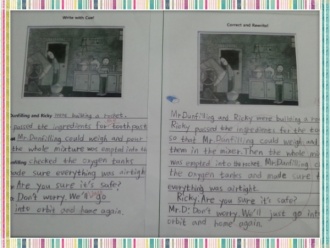 Write with Ease!
Dunfilling and Ricky were building a rocket.
passed the ingredients for toothpaste
Mr. Dunfilling could weigh and pour
the whole mixture was emptied into th
nfilling checked the oxygen tanks
made sure everything was airtight.
Are you sure it's safe?
Don't worry. We'll go
into orbit and home again.
Correct and Rewrite!
Mr. Dunfilling and Ricky were building a ro
Ricky passed the ingredients for the
so that Mr. Dunfilling could weigh and
them in the mixer. Then the whole
was emptied into the rocket. Mr. Dunfilling
the oxygen tanks and made sure
everything was airtight.
Ricky: Are you sure it's safe?
Mr. D: Don't worry. We'll just go into
orbit and home again.